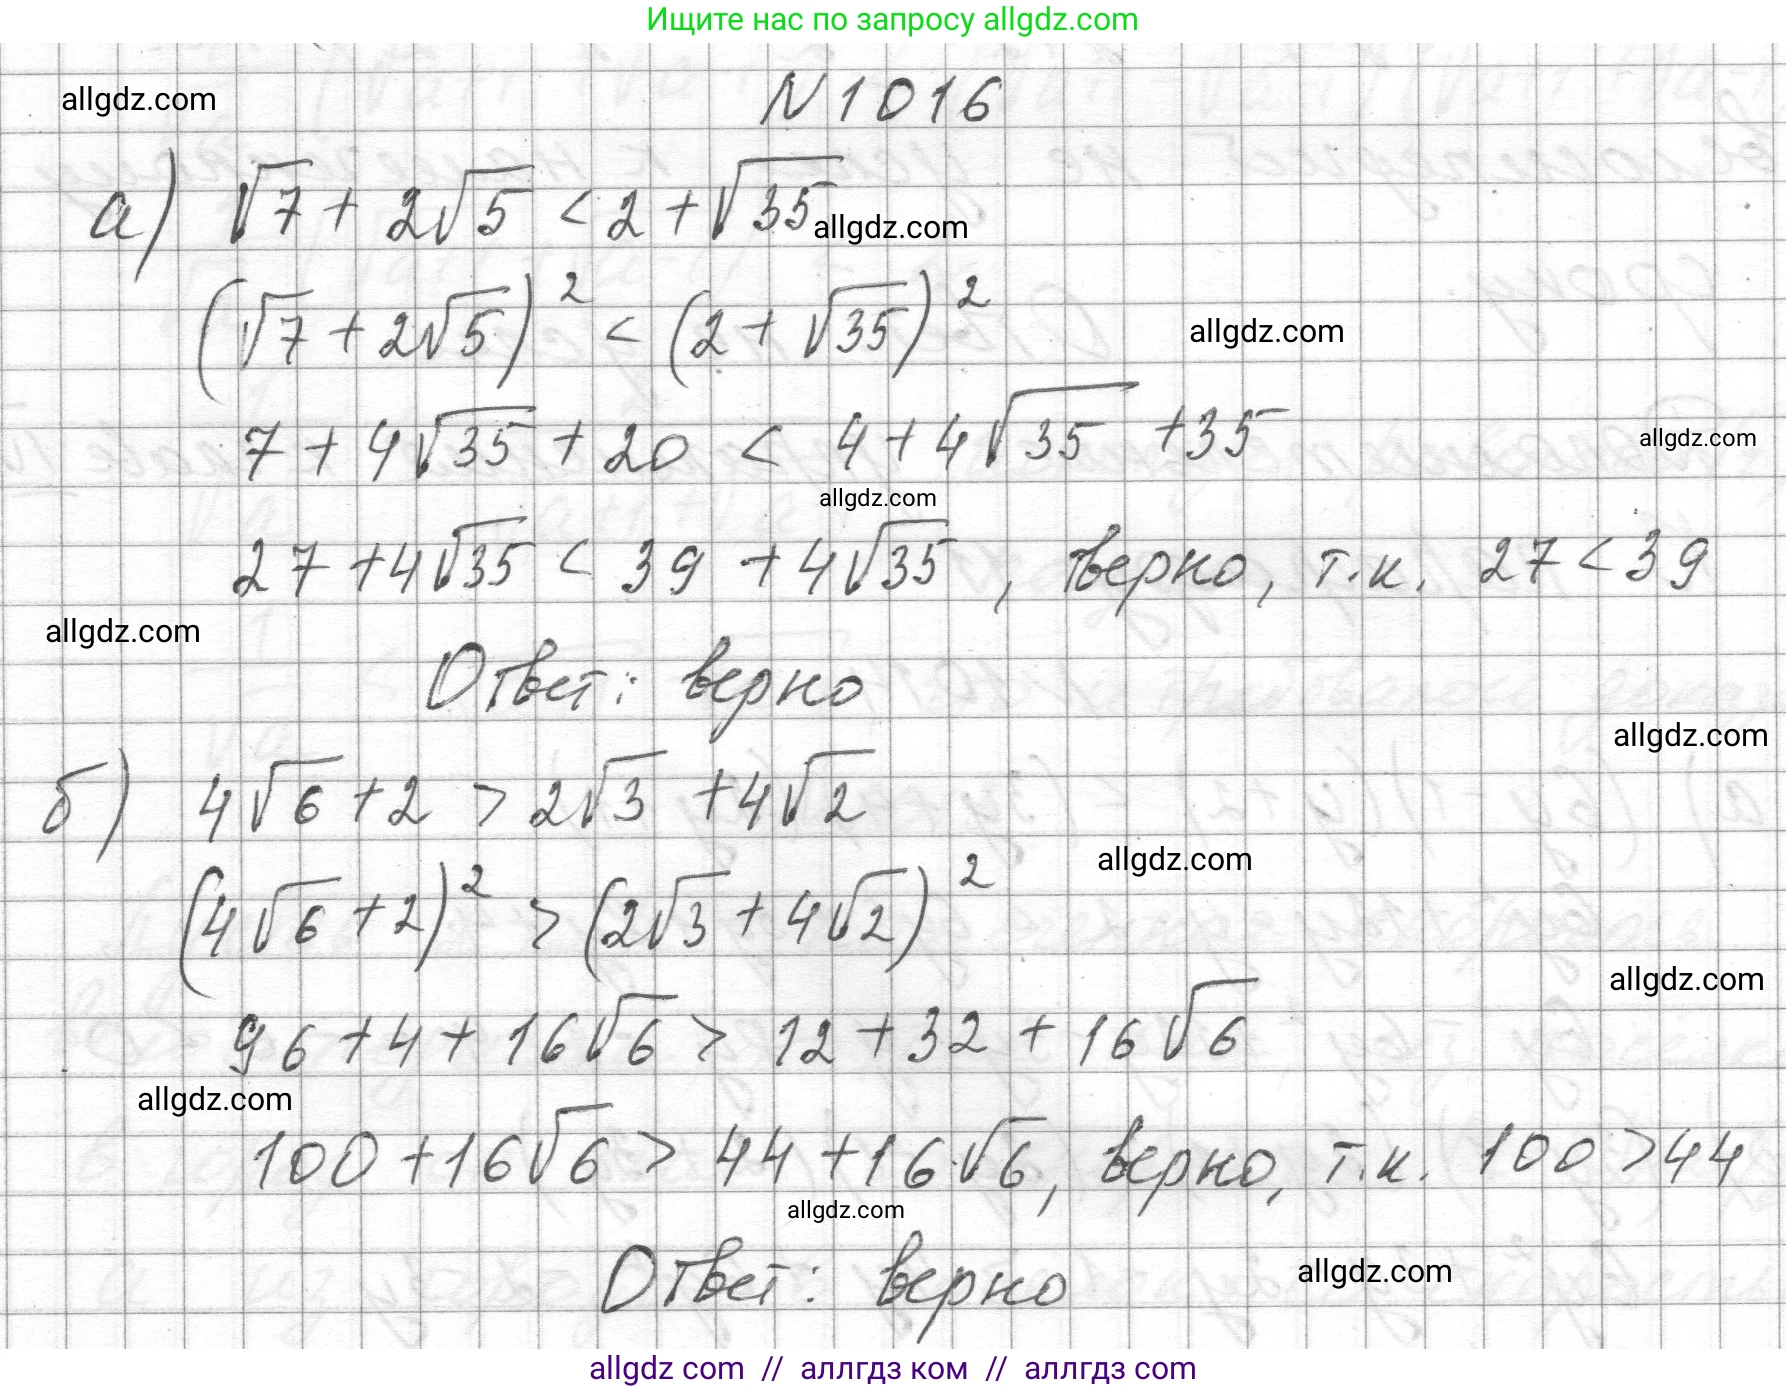 Ищите нас по запросу allgdz.com
allgdz.com
N 1016
а) √7 + 2√5 < 2 + √35
allgdz.com
(√7 + 2√5)² < (2 + √35)²
allgdz.com
7 + 4√35 + 20 < 4 + 4√35 + 35
allgdz.com
allgdz.com
27 + 4√35 < 39 + 4√35, верно, т.к. 27 < 39
allgdz.com
Ответ: верно
allgdz.com
б) 4√6 + 2 > 2√3 + 4√2
allgdz.com
(4√6 + 2)² > (2√3 + 4√2)²
allgdz.com
96 + 4 + 16√6 > 12 + 32 + 16√6
allgdz.com
100 + 16√6 > 44 + 16√6, верно, т.к. 100 > 44
allgdz.com
Ответ: верно
allgdz.com
allgdz com // аллгдз ком // аллгдз com